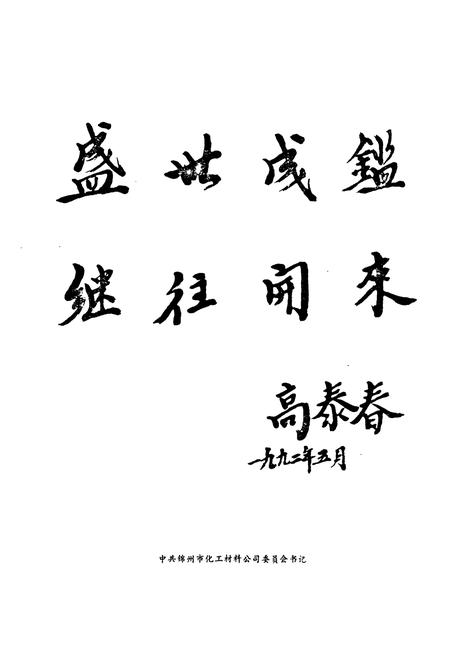 盛世成鑑
继往開來
高泰春
一九九二年五月
中共锦州市化工材料公司委员会书记